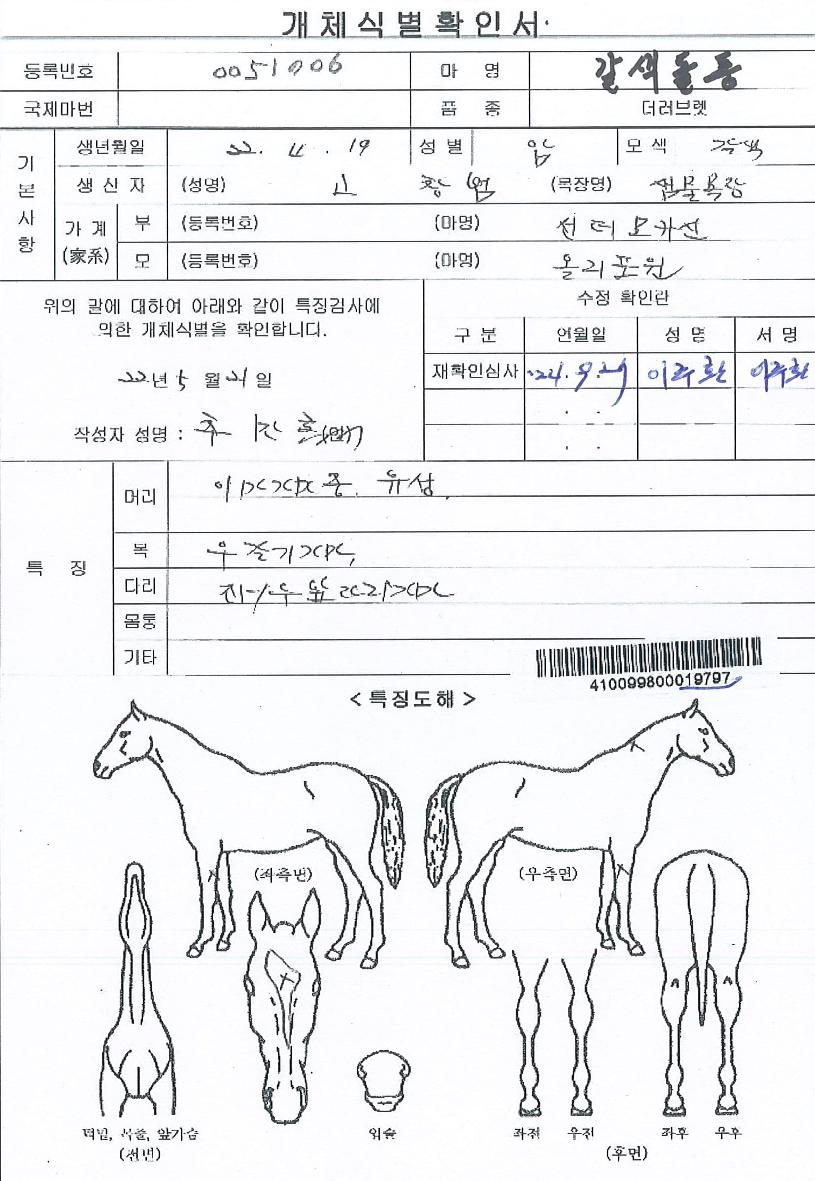 개체식별확인서
등록번호 0051006 마 명 갈색돌풍
국제마번 품 종 더러브렛
기본사항
생년월일 22. 4. 19 성별 암 모색 갈색
생산자 (성명) 고 창 범 (목장명)
가계 (家系) 부 (등록번호) (마명) 선 더 모카신
모 (등록번호) (마명) 올리포원
위의 말에 대하여 아래와 같이 특징검사에
의한 개체식별을 확인합니다.
22년 5 월 21 일
작성자 성명 :
수정 확인란
구 분 연월일 성 명 서 명
재확인심사 '24. 9. 이주환 이주환
특 징
머리 유성
목
다리
몸통
기타
410099800019797
< 특징도해 >
(좌측면) (우측면)
턱밑, 목줄, 앞가슴
(전면)
입술
좌전 우전 좌후 우후
(후면)